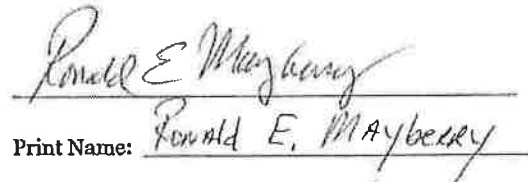 Ronald E Mayberry
Print Name: Ronald E. MAyberry